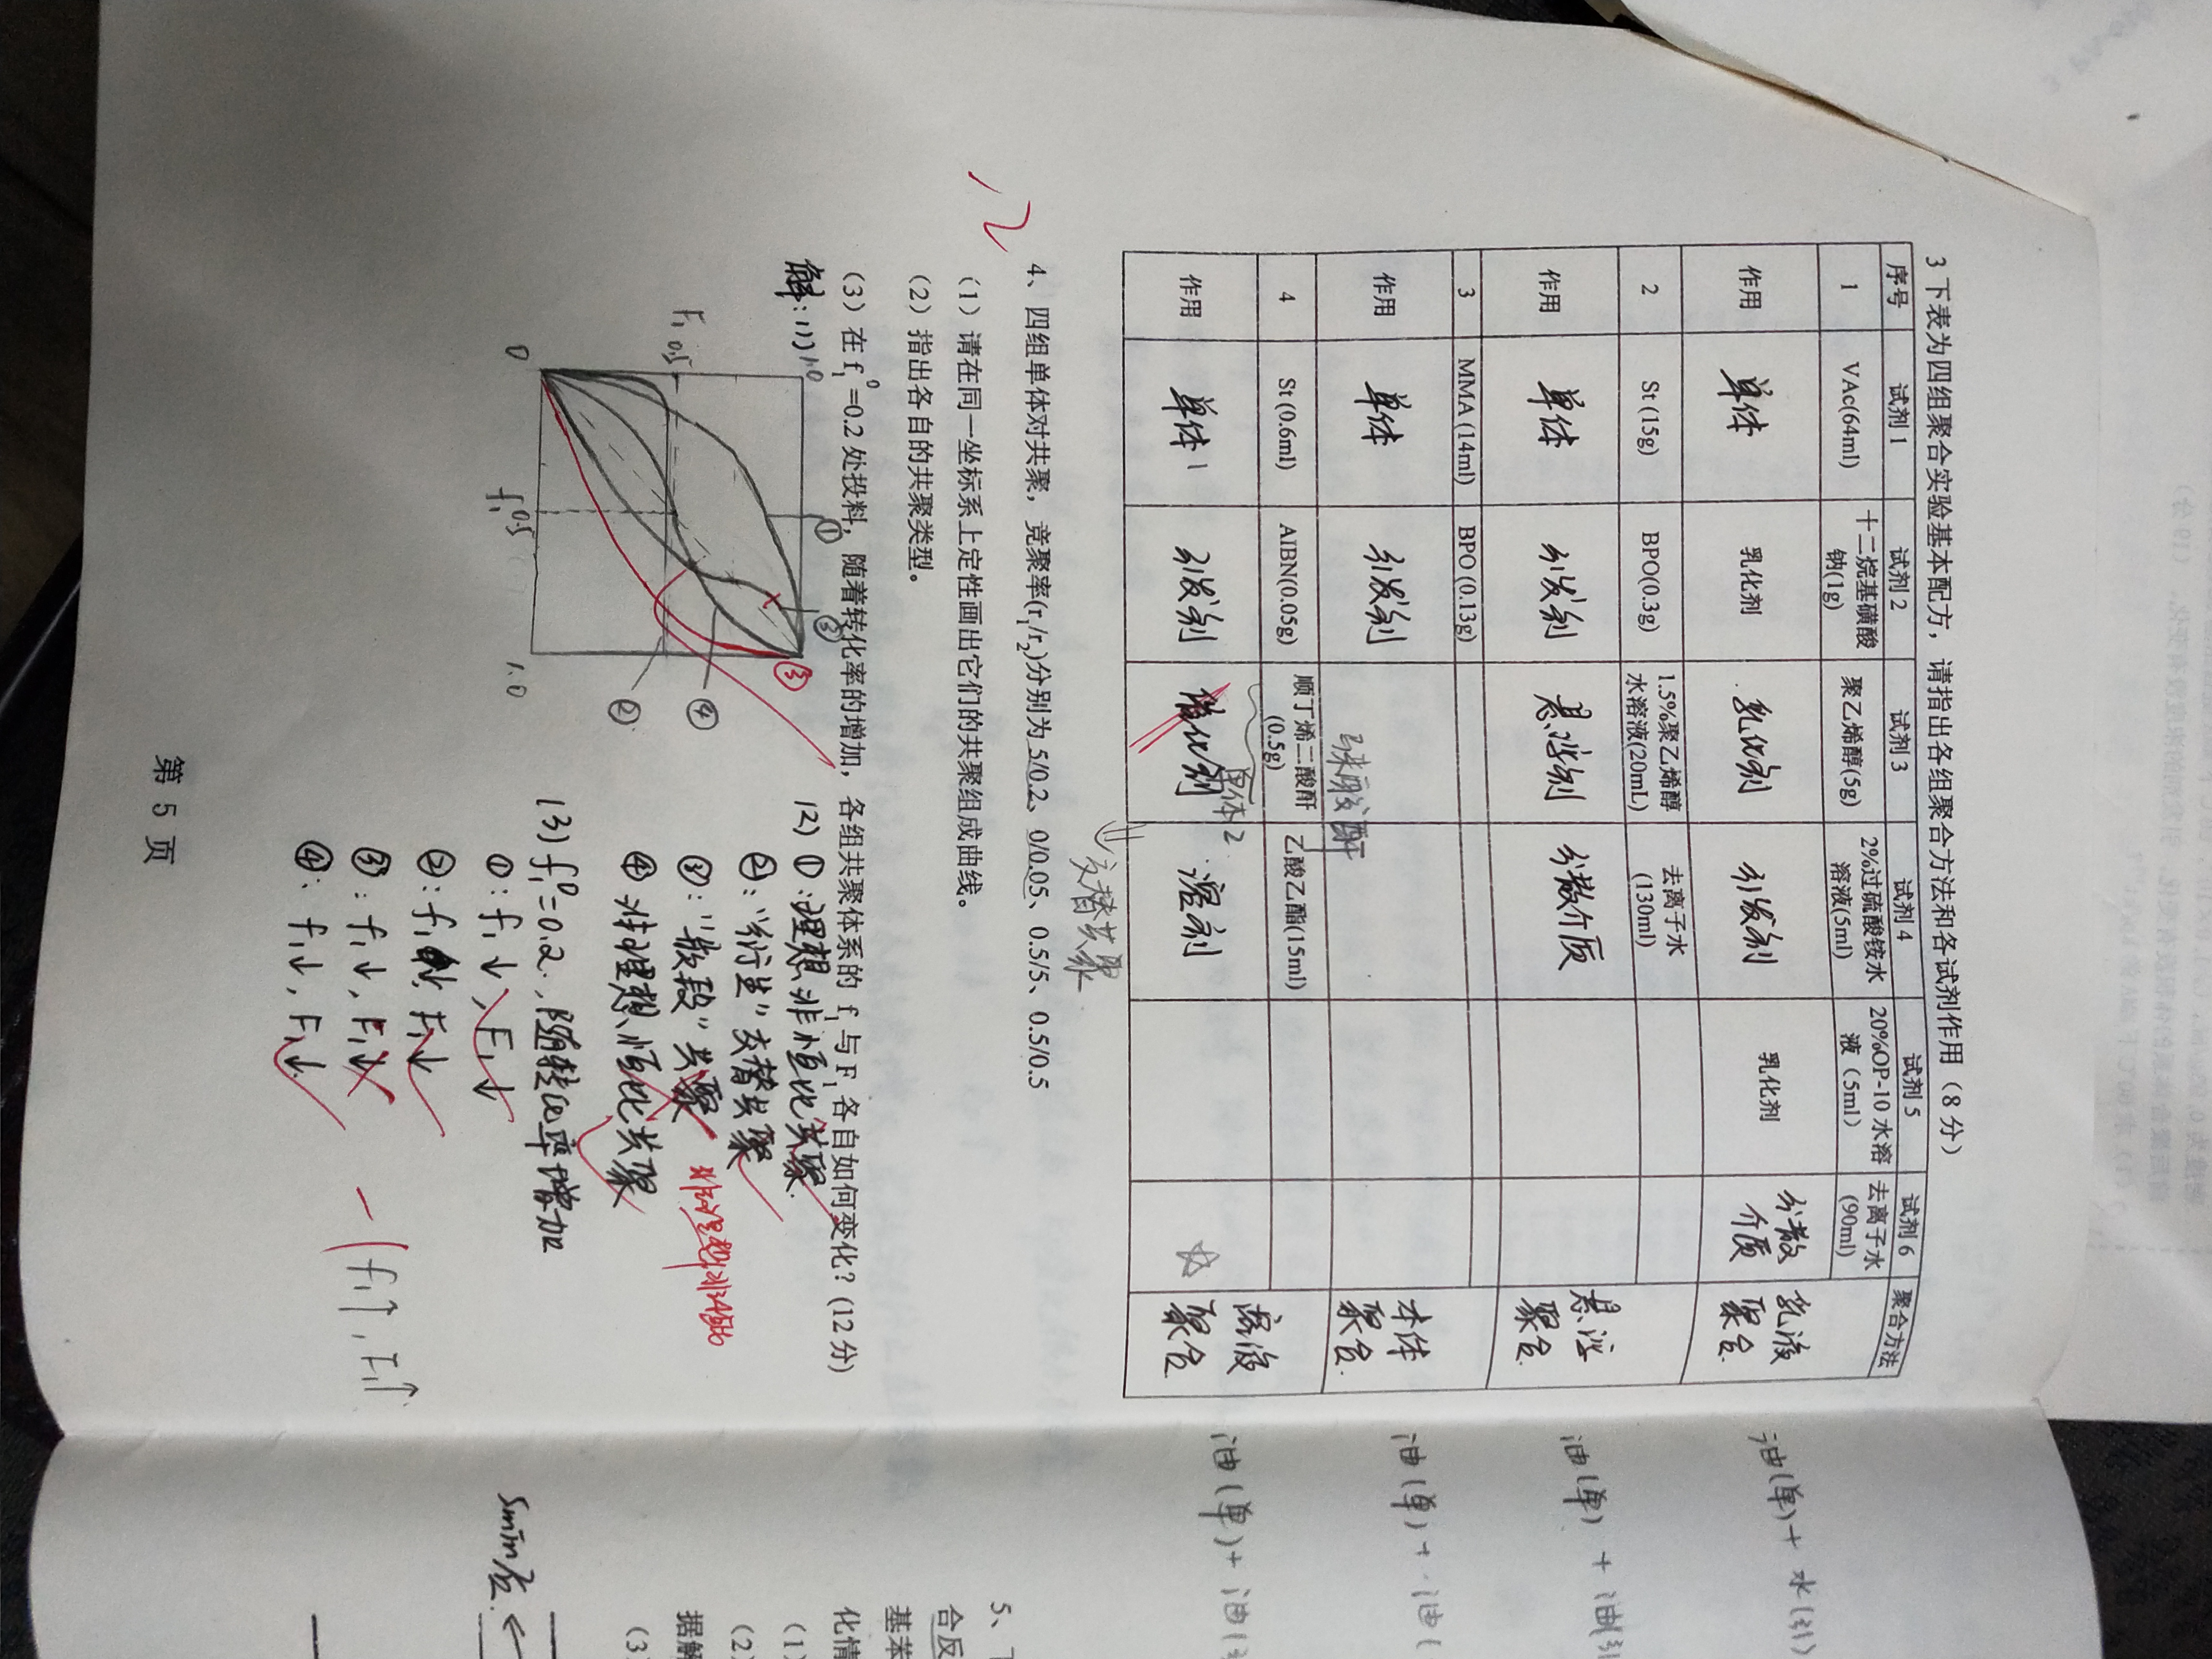 3 下表为四组聚合实验基本配方，请指出各组聚合方法和各试剂作用（8 分）
序号 试剂 1 试剂 2 试剂 3 试剂 4 试剂 5 试剂 6 聚合方法
1 VAc(64ml) 十二烷基磺酸钠(1g) 聚乙烯醇(5g) 2%过硫酸铵水溶液(5ml) 20%OP-10 水溶液（5ml） 去离子水(90ml)
作用 单体 乳化剂 乳化剂 引发剂 乳化剂 分散介质 乳液聚合.
2 St (15g) BPO(0.3g) 1.5%聚乙烯醇水溶液(20mL) 去离子水(130ml)
作用 单体 引发剂 悬浮剂 分散介质 悬浮聚合.
3 MMA (14ml) BPO (0.13g)
作用 单体 引发剂 本体聚合.
4 St (0.6ml) AIBN(0.05g) 顺丁烯二酸酐(0.5g) 乙酸乙酯(15ml)
作用 单体1 引发剂 单体2 溶剂 溶液聚合
⇒交替共聚
12
4、四组单体对共聚，竞聚率(r₁/r₂)分别为 5/0.2、0/0.05、0.5/5、0.5/0.5
（1）请在同一坐标系上定性画出它们的共聚组成曲线。
（2）指出各自的共聚类型。
（3）在 f₁⁰=0.2 处投料，随着转化率的增加，各组共聚体系的 f₁ 与 F₁ 各自如何变化？（12 分）
解: 1)
1.0
F₁ 0.5
0
f₁ 0.5
1.0
①
③
③
④
②
12) ①:理想非恒比共聚.
②:"衍生"交替共聚
③:"嵌段"共聚
非理想非恒比
④ 非理想恒比共聚
13) f₁⁰=0.2.,随转化率增加
①: f₁↓, F₁↓
②: f₁ F₁↓
③: f₁↓, F₁
④: f₁↓, F₁↓
f₁↑, F₁↑
第 5 页
油(单)+ 水(引)
油(单) + 油(引
油(单) + 油(
油(单)+ 油(
5、
合反
基苯
化情
（1）
（2）
据解
（3）